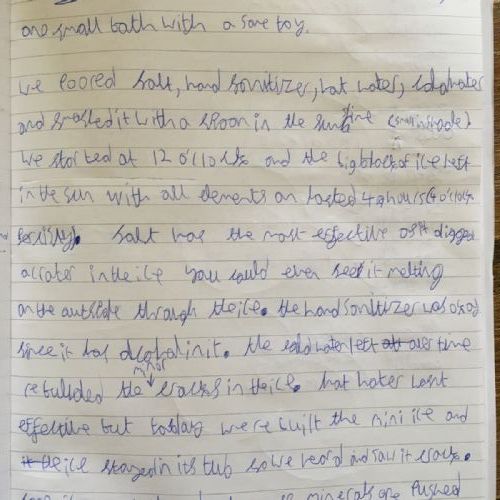 one small bath with a            toy.
we poored salt, hand sonitizer, hot water, cold water
and smashed it with a spoon in the sunshine (small in shade)
we started at 12 o'clock and the big block of ice left
in the sun with all elements on lasted 4 hours (4 o'clock
            salt was the most effective as it digged
a crater in the ice you could even see it melting
on the outside through the ice. the hand sonitizer was
since it has alcohol in it. the cold water left over time
rebuilded the minor cracks in the ice. hot water wasnt
effective but            we re built the mini ice and
the ice stayed in its tub so we heard and saw it crack.
minerals are pushed